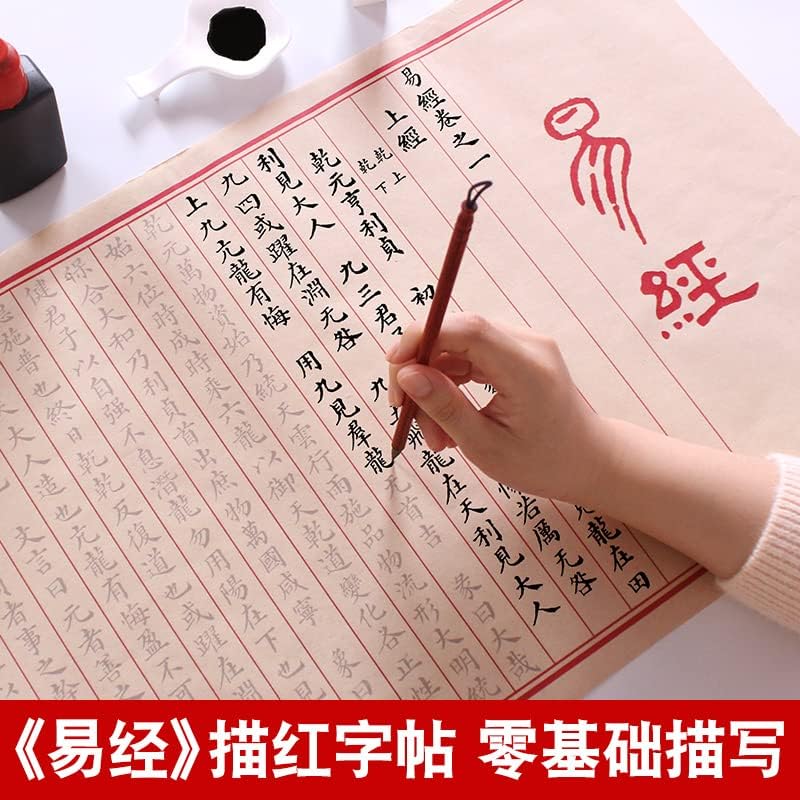 易經
易經卷之一
上經
乾上
乾下
乾元亨利貞 初 見龍在田
利見大人 九三君 惕若厲无咎
九四或躍在淵无咎 九五飛龍在天利見大人
上九亢龍有悔 用九見羣龍无首吉 彖曰大哉
乾元萬物資始乃統天雲行雨施品物流形大明終
始六位時成時乘六龍以御天乾道變化各正性
保合大和乃利貞首出庶物萬國咸寧 象曰
健君子以自强不息潛龍勿用陽在下也見
德施普也終日乾乾反復道也或躍在淵
大人造也亢龍有悔盈不可
文言曰元者善之
者事之幹
《易经》描红字帖 零基础描写